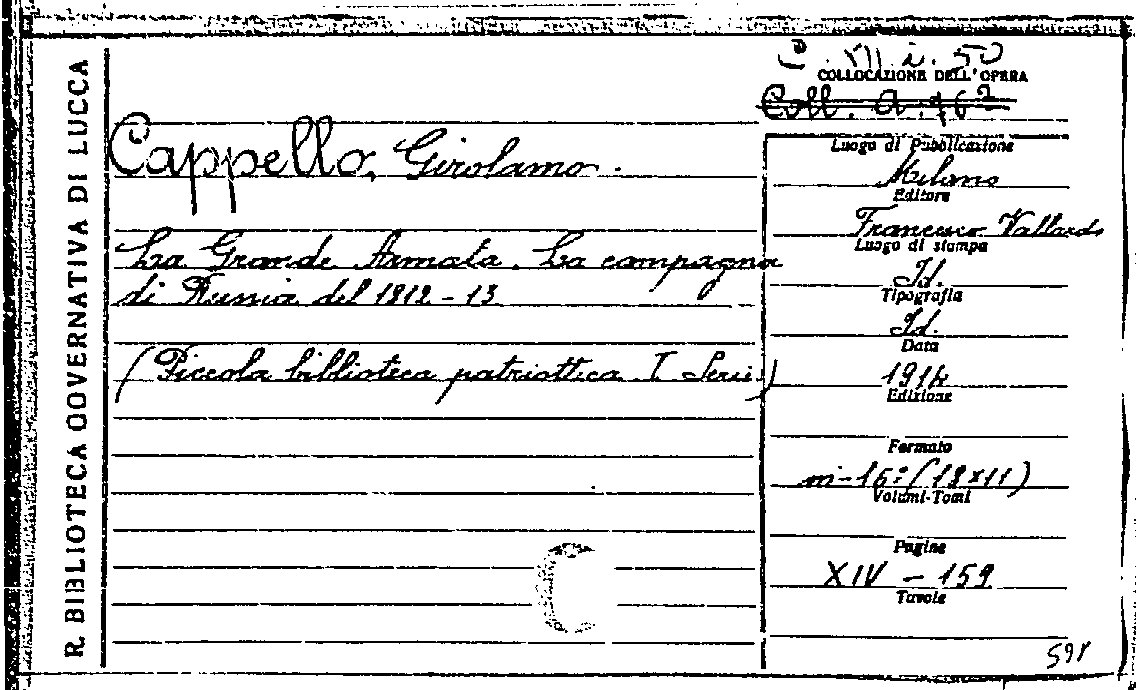 R. BIBLIOTECA GOVERNATIVA DI LUCCA
C. VII. i. 50
COLLOCAZIONE DELL'OPERA
Coll. A. 762
Cappello, Girolamo.
La Grande Armata. La campagna
di Russia del 1812-13
(Piccola biblioteca patriottica I Serie)
Luogo di Pubblicazione
Milano
Editore
Francesco Vallardi
Luogo di stampa
Id.
Tipografia
Id.
Data
1914
Edizione
Formato
in-16º (18x11)
Volumi-Tomi
Pagine
XIV - 159
Tavole